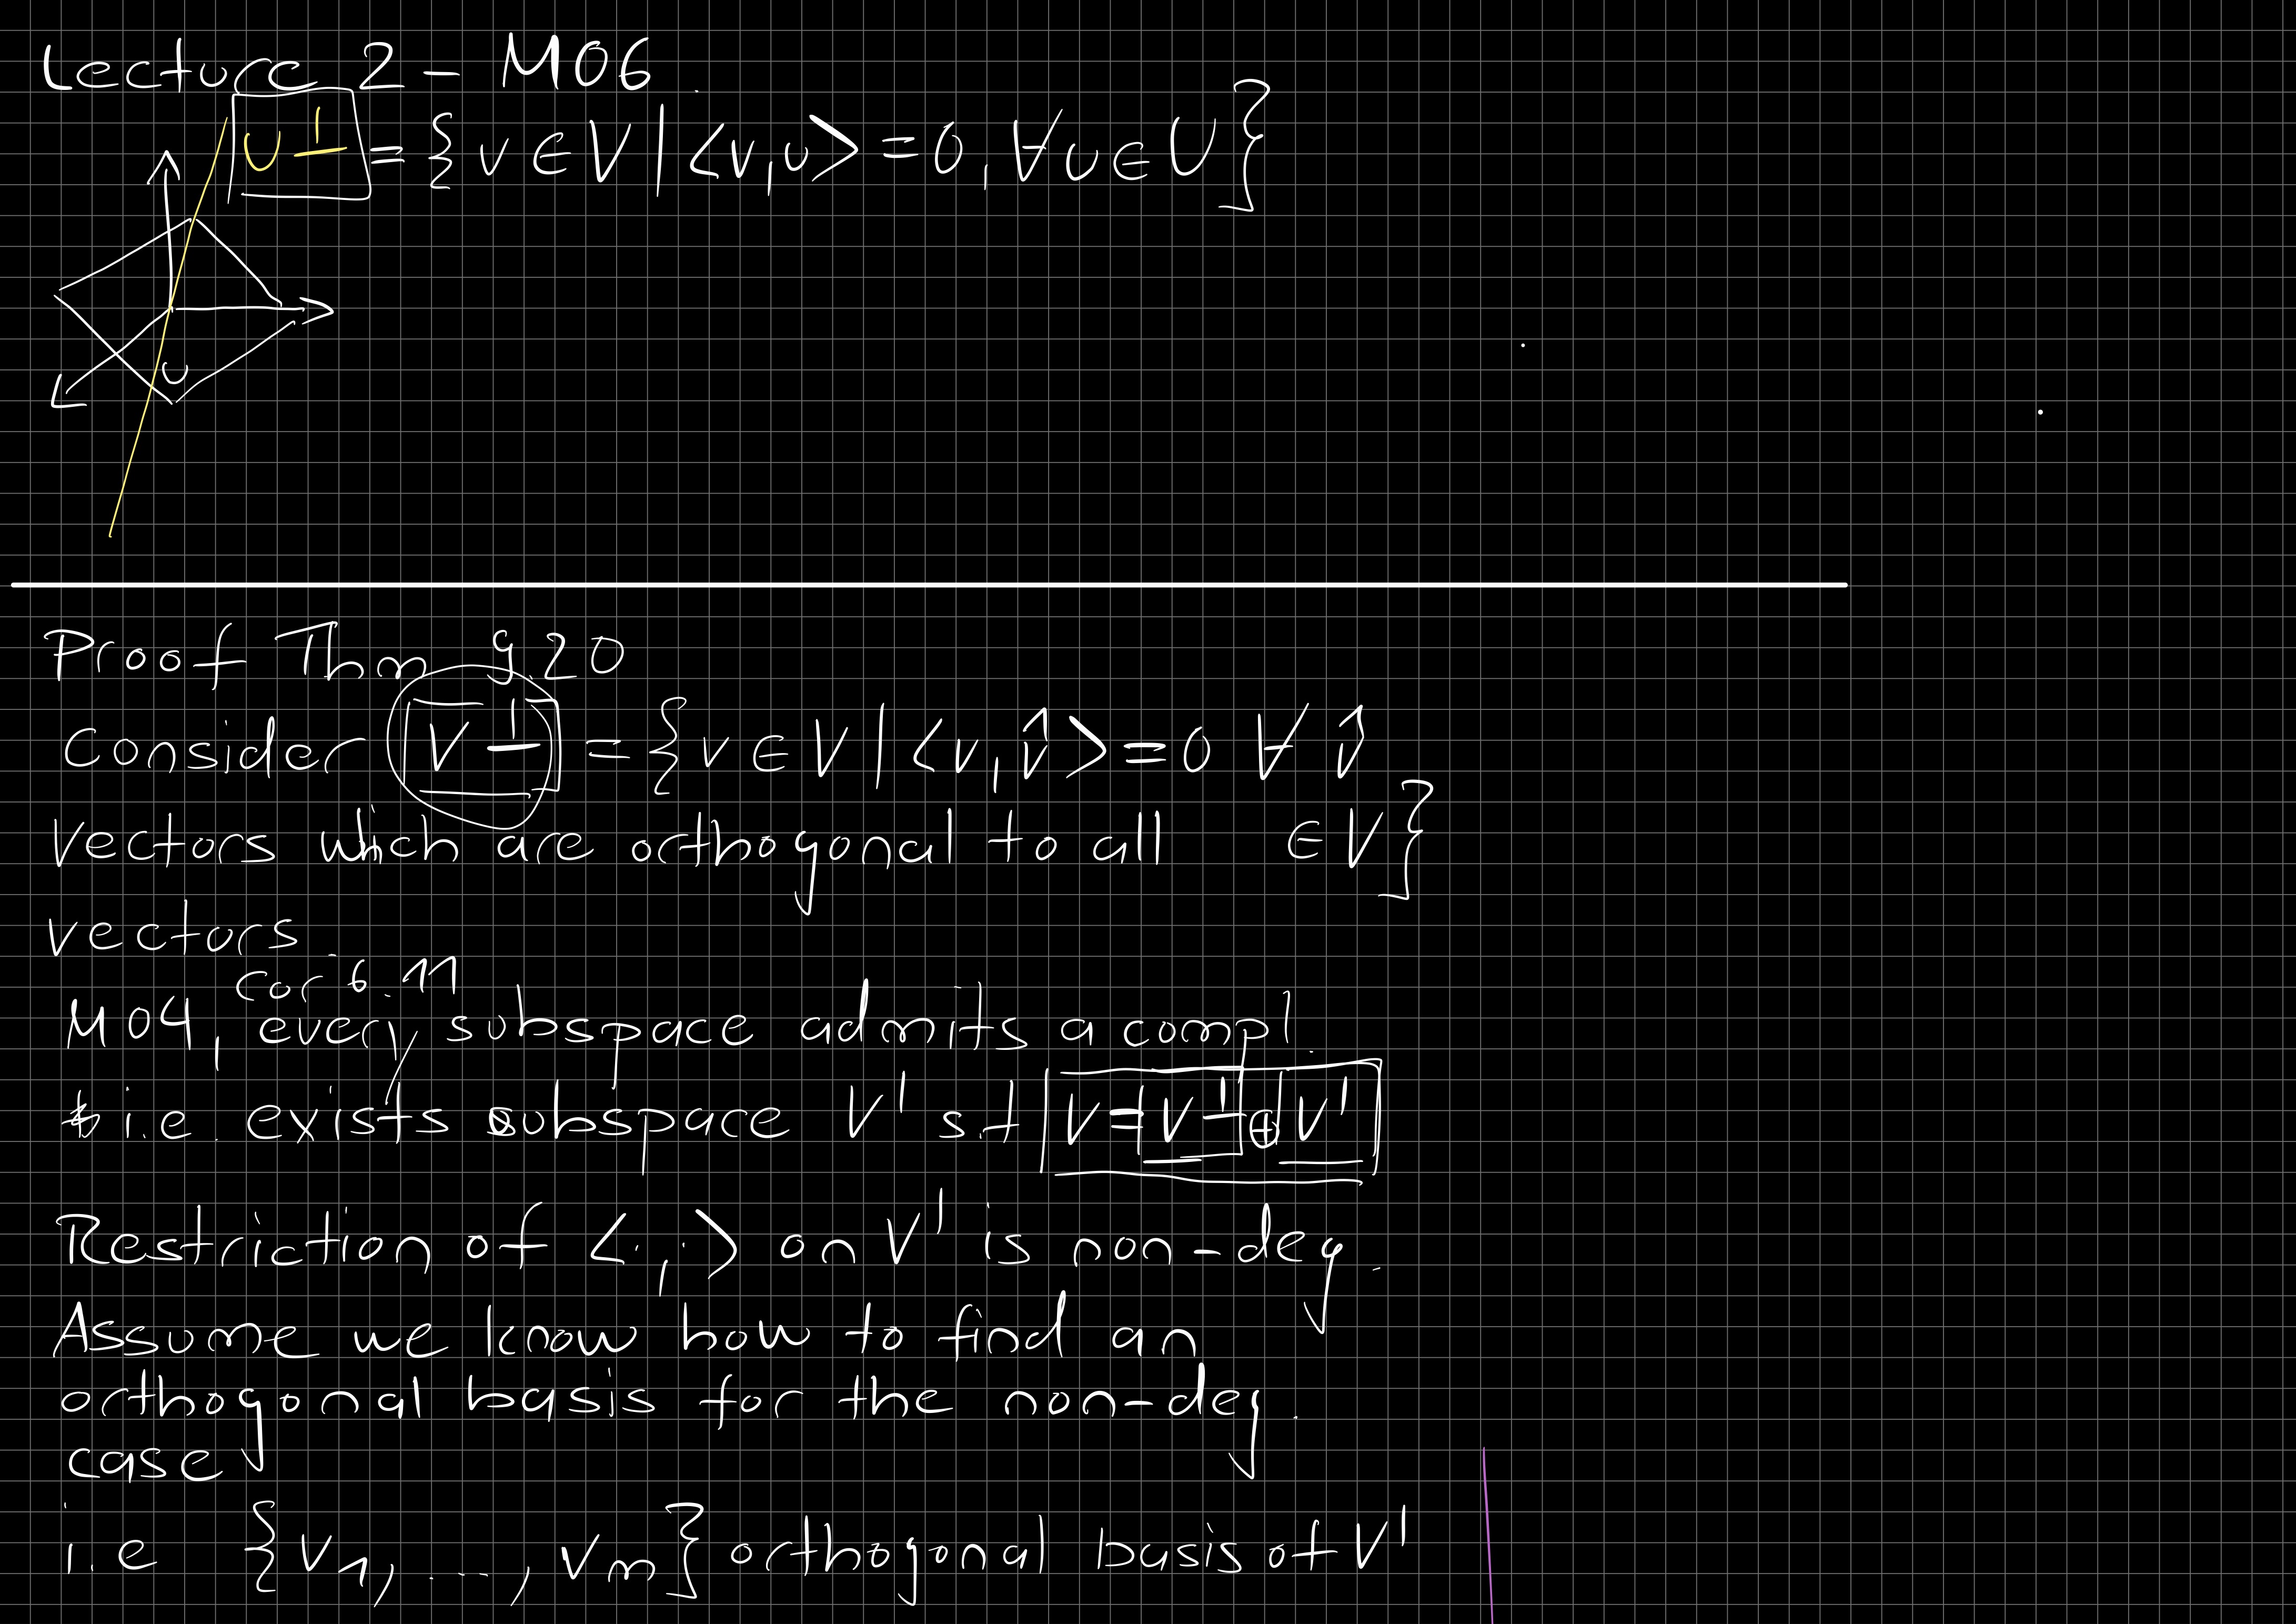 Lecture 2 - M06
U⊥ = {v ∈ V | <v, u> = 0, ∀ u ∈ U}
U
Proof Thm 9.20
Consider V⊥ = {v ∈ V | <v, v̂> = 0 ∀ v̂
vectors which are orthogonal to all ∈ V}
vectors.
Cor 6.11
M04, every subspace admits a compl.
i.e. exists subspace V' s.t V = V⊥ ⊕ V'
Restriction of <·,·> on V' is non-deg.
Assume we know how to find an
orthogonal basis for the non-deg.
case
i.e {v1, ..., vm} orthogonal basis of V'